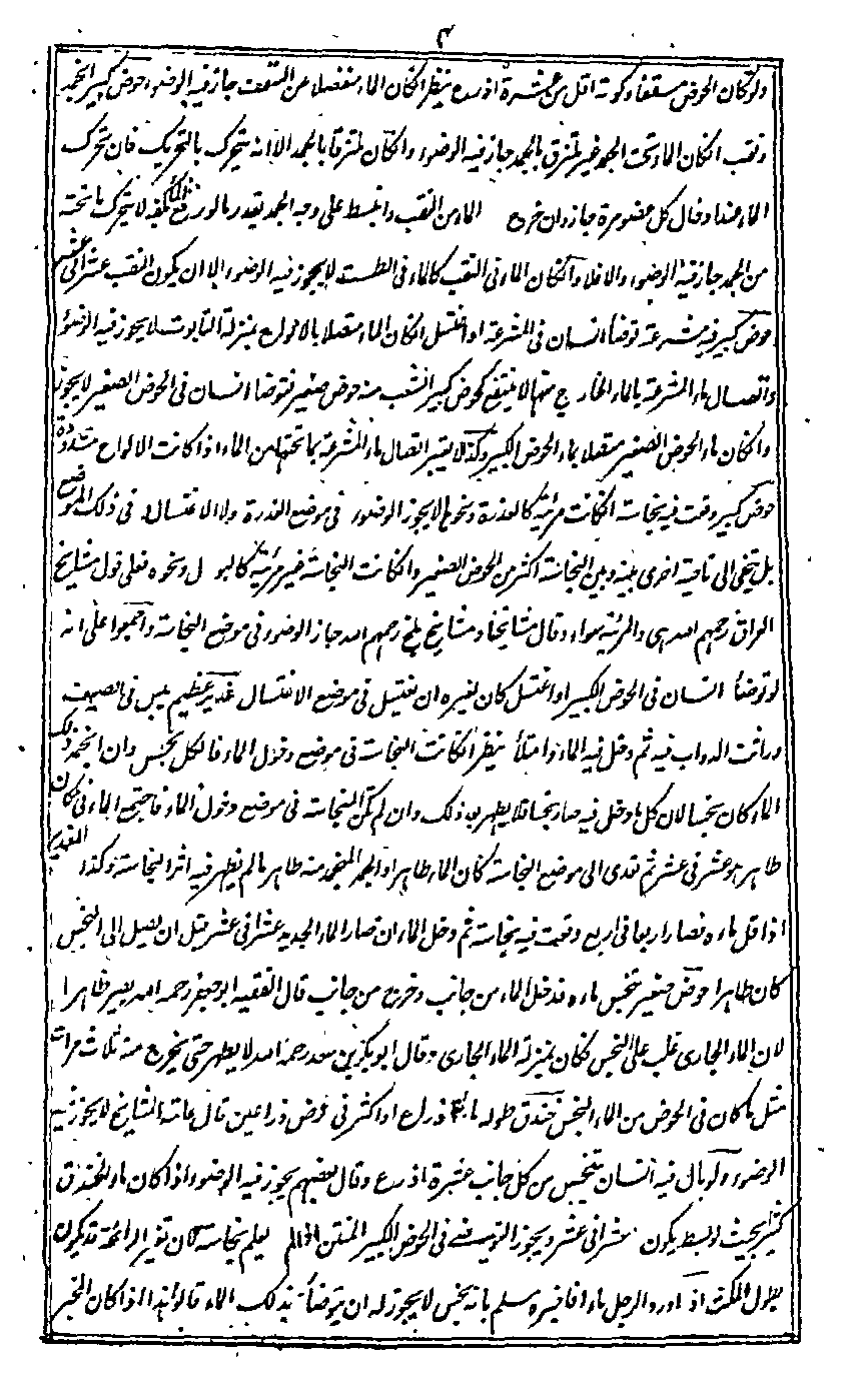 ٣
ولو كان الحوض مسقفا وكوته اقل من عشرة اذرع ينظر ان كان الماء منفصلا عن السقف جاز فيه الوضوء حوض كبير انجمد
وثقب ان كان الماء تحت الجمد غير ملتزق بالجمد جاز فيه الوضوء وان كان ملتزقا بالجمد الا انه يتحرك بالتحريك فان تحرك
الماء عند ادخال كل عضو مرة جاز وان خرج الماء من الثقب وانبسط على وجه الجمد بقدر ما لو رفع الماء بكفه لا يتحرك ما تحته
من الجمد جاز فيه الوضوء والا فلا وان كان الماء فى الثقب كالماء فى الطست لا يجوز فيه الوضوء الا ان يكون الثقب عشرا فى عشر
حوض كبير فيه مشرعة توضأ انسان فى المشرعة او اغتسل ان كان الماء متصلا بالالواح بمنزلة التابوت لا يجوز فيه الوضوء
واتصال ماء المشرعة بالماء الخارج منها لا ينفع كحوض كبير انشعب منه حوض صغير فتوضا انسان فى الحوض الصغير لا يجوز
وان كان ماء الحوض الصغير متصلا بماء الحوض الكبير وكذا لا يعتبر اتصال ماء المشرعة بما تحتها من الماء اذا كانت الالواح مشدودة
حوض كبير وقعت فيه نجاسة ان كانت مرئية كالعذرة ونحوها لا يجوز الوضوء فى موضع العذرة ولا الاغتسال فى ذلك الموضع
بل يتنحى الى ناحية اخرى بينه وبين النجاسة اكثر من الحوض الصغير وان كانت النجاسة غير مرئية كالبول ونحوه فعلى قول مشايخ
العراق رحمهم الله هى والمرئية سواء وقال مشايخنا ومشايخ بلخ رحمهم الله جاز الوضوء فى موضع النجاسة واجمعوا على انه
لو توضأ انسان فى الحوض الكبير او اغتسل كان لغيره ان يغتسل فى موضع الاغتسال غدير عظيم يبس فى الصيف
وراثت الدواب فيه ثم دخل فيه الماء وامتلأ ينظر ان كانت النجاسة فى موضع دخول الماء فالكل نجس وان انجمد ذلك
الماء كان نجسا لان كل ما دخل فيه صار نجسا فلا يطهر بعد ذلك وان لم تكن النجاسة فى موضع دخول الماء فاجتمع الماء فى مكان
طاهر هو عشر فى عشر ثم تعدى الى موضع النجاسة كان الماء طاهرا والجمد المنجمد منه طاهر ما لم يظهر فيه اثر النجاسة وكذا الغدير
اذا قل ماءه فصار اربعا فى اربع وقعت فيه نجاسة ثم دخل الماء ان صار الماء الجديد عشرا فى عشر قبل ان يصل الى النجس
كان طاهرا حوض صغير تنجس ماءه فدخل الماء من جانب وخرج من جانب قال الفقيه ابو جعفر رحمه الله يصير طاهرا
لان الماء الجارى غلب على النجس فكان بمنزلة الماء الجارى وقال ابو بكر بن سعد رحمه الله لا يطهر حتى يخرج منه ثلاث مرات
مثل ما كان فى الحوض من الماء النجس خندق طوله مائة ذراع او اكثر فى عرض ذراعين قال عامة المشايخ لا يجوز فيه
الوضوء ولو بال فيه انسان يتنجس من كل جانب عشرة اذرع وقال بعضهم يجوز فيه الوضوء اذا كان ماء الخندق
كثيرا بحيث لو بسط يكون عشرا فى عشر ويجوز التوضى فى الحوض الكبير المنتن اذا لم يعلم بنجاسته لان تغير الرائحة قد يكون
بطول المكث اذا اورد الرجل ماء فاخبره مسلم بانه نجس لا يجوز له ان يتوضأ بذلك الماء قالوا هذا اذا كان المخبر